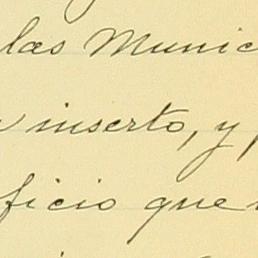 las Munic
inserto, y
ficio que